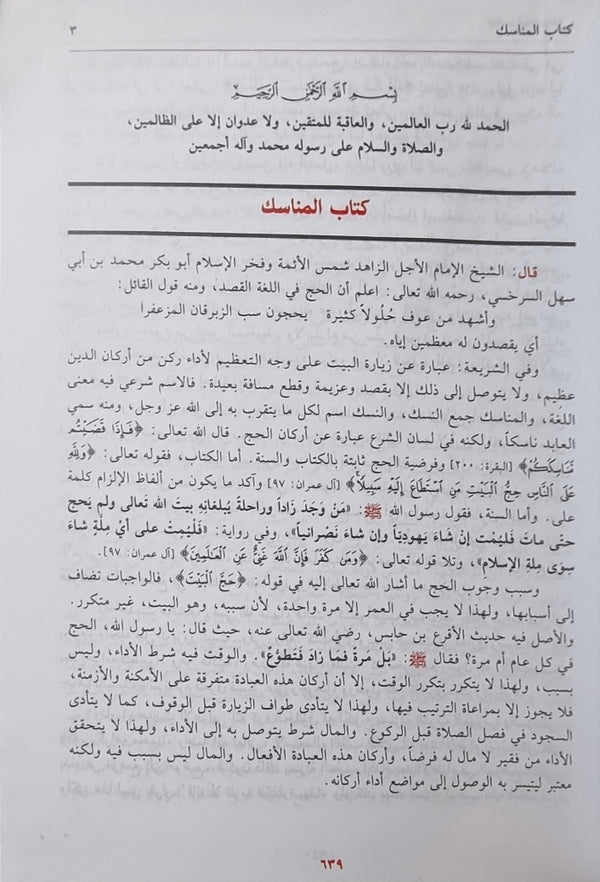 كتاب المناسك ٣
بسم الله الرحمن الرحيم
الحمد لله رب العالمين، والعاقبة للمتقين، ولا عدوان إلا على الظالمين،
والصلاة والسلام على رسوله محمد وآله أجمعين
كتاب المناسك
قال: الشيخ الإمام الأجل الزاهد شمس الأئمة وفخر الإسلام أبو بكر محمد بن أبي
سهل السرخسي، رحمه الله تعالى: اعلم أن الحج في اللغة القصد، ومنه قول القائل:
وأشهد من عوف حُلُولاً كثيرة يحجون سب الزبرقان المزعفرا
أي يقصدون له معظمين إياه.
وفي الشريعة: عبارة عن زيارة البيت على وجه التعظيم لأداء ركن من أركان الدين
عظيم، ولا يتوصل إلى ذلك إلا بقصد وعزيمة وقطع مسافة بعيدة. فالاسم شرعي فيه معنى
اللغة، والمناسك جمع النسك، والنسك اسم لكل ما يتقرب به إلى الله عز وجل، ومنه سمي
العابد ناسكاً، ولكنه في لسان الشرع عبارة عن أركان الحج. قال الله تعالى: ﴿فَإِذَا قَضَيْتُم
مَّنَاسِكَكُمْ﴾ [البقرة: ٢٠٠] وفرضية الحج ثابتة بالكتاب والسنة. أما الكتاب، فقوله تعالى: ﴿وَلِلَّهِ
عَلَى النَّاسِ حِجُّ الْبَيْتِ مَنِ اسْتَطَاعَ إِلَيْهِ سَبِيلًا﴾ [آل عمران: ٩٧] وآكد ما يكون من ألفاظ الإلزام كلمة
على. وأما السنة، فقول رسول الله ﷺ: «مَنْ وَجَدَ زَاداً وراحلةً يُبلغانِهِ بيتَ الله تعالى ولم يَحج
حتّى ماتَ فلْيَمُت إنْ شاءَ يَهودِياً وإن شاءَ نَصْرانياً»، وفي رواية: «فَلْيَمُت على أيْ مِلَةٍ شاءَ
سِوَى مِلةِ الإسلامِ»، وتلا قوله تعالى: ﴿وَمَن كَفَرَ فَإِنَّ اللَّهَ غَنِيٌّ عَنِ الْعَالَمِينَ﴾ [آل عمران: ٩٧].
وسبب وجوب الحج ما أشار الله تعالى إليه في قوله: ﴿حِجُّ الْبَيْتِ﴾، فالواجبات تضاف
إلى أسبابها، ولهذا لا يجب في العمر إلا مرة واحدة، لأن سببه، وهو البيت، غير متكرر.
والأصل فيه حديث الأقرع بن حابس، رضي الله تعالى عنه، حيث قال: يا رسول الله، الحج
في كل عام أم مرة؟ فقال ﷺ: «بَلْ مَرةً فمَا زادَ فَتَطَوُّعٌ». والوقت فيه شرط الأداء، وليس
بسبب، ولهذا لا يتكرر بتكرر الوقت، إلا أن أركان هذه العبادة متفرقة على الأمكنة والأزمنة،
فلا يجوز إلا بمراعاة الترتيب فيها، ولهذا لا يتأدى طواف الزيارة قبل الوقوف، كما لا يتأدى
السجود في فصل الصلاة قبل الركوع. والمال شرط يتوصل به إلى الأداء، ولهذا لا يتحقق
الأداء من فقير لا مال له فرضاً، وأركان هذه العبادة الأفعال. والمال ليس بسبب فيه ولكنه
معتبر ليتيسر به الوصول إلى مواضع أداء أركانه.
٦٣٩